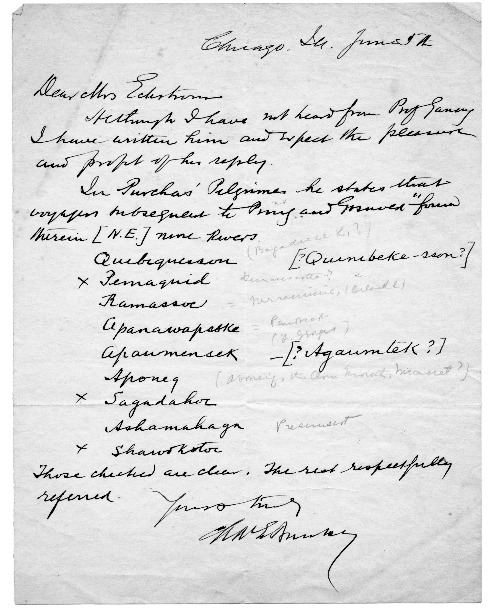 Chicago. Ill. June 5th
Dear Mrs Eckstrom
Although I have not heard from Prof Ganong
I have written him and expect the pleasure
and profit of his reply.
In Purchas' Pilgrimes he states that
voyages subsequent to Pring and Gosnold "found
therein [N.E.] nine Rivers
Quibiquesson [?Quinibeke-sson?]
x Pemaquid
Ramassoc =
Apanawapeske = Penobscot
Apaumensek - [?Agaumtek?]
Aponeg
x Sagadahoc
Ashamahaga Presumscot
x Shawokotoc
Those checked are clear. The rest respectfully
referred.
Yours truly